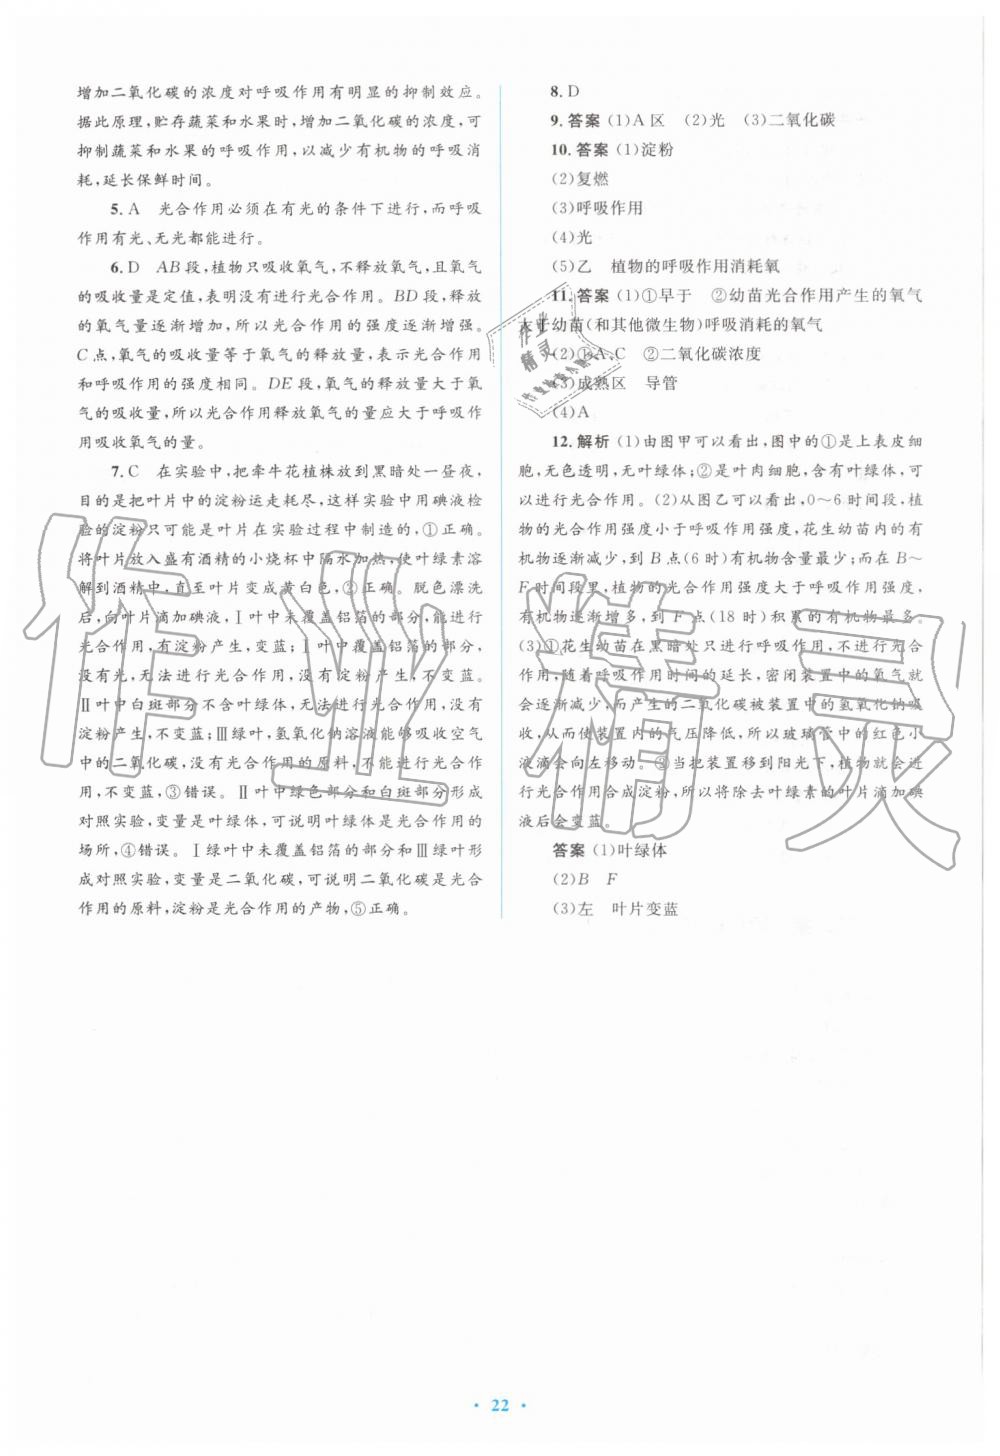 增加二氧化碳的浓度对呼吸作用有明显的抑制效应。
据此原理,贮存蔬菜和水果时,增加二氧化碳的浓度,可
抑制蔬菜和水果的呼吸作用,以减少有机物的呼吸消
耗,延长保鲜时间。
5. A 光合作用必须在有光的条件下进行,而呼吸
作用有光、无光都能进行。
6. D AB段,植物只吸收氧气,不释放氧气,且氧气
的吸收量是定值,表明没有进行光合作用。BD段,释放
的氧气量逐渐增加,所以光合作用的强度逐渐增强。
C点,氧气的吸收量等于氧气的释放量,表示光合作用
和呼吸作用的强度相同。DE段,氧气的释放量大于氧
气的吸收量,所以光合作用释放氧气的量应大于呼吸作
用吸收氧气的量。
7. C 在实验中,把牵牛花植株放到黑暗处一昼夜,
目的是把叶片中的淀粉运走耗尽,这样实验中用碘液检
验的淀粉只可能是叶片在实验过程中制造的,①正确。
将叶片放入盛有酒精的小烧杯中隔水加热,使叶绿素溶
解到酒精中,直至叶片变成黄白色,②正确。脱色漂洗
后,向叶片滴加碘液,Ⅰ叶中未覆盖铝箔的部分,能进行
光合作用,有淀粉产生,变蓝;Ⅰ叶中覆盖铝箔的部分,
没有光,无法进行光合作用,没有淀粉产生,不变蓝。
Ⅱ叶中白斑部分不含叶绿体,无法进行光合作用,没有
淀粉产生,不变蓝;Ⅲ绿叶,氢氧化钠溶液能够吸收空气
中的二氧化碳,没有光合作用的原料,不能进行光合作
用,不变蓝,③错误。Ⅱ叶中绿色部分和白斑部分形成
对照实验,变量是叶绿体,可说明叶绿体是光合作用的
场所,④错误。Ⅰ绿叶中未覆盖铝箔的部分和Ⅲ绿叶形
成对照实验,变量是二氧化碳,可说明二氧化碳是光合
作用的原料,淀粉是光合作用的产物,⑤正确。
8. D
9. 答案 (1)A区 (2)光 (3)二氧化碳
10. 答案 (1)淀粉
(2)复燃
(3)呼吸作用
(4)光
(5)乙 植物的呼吸作用消耗氧
11. 答案 (1)①早于 ②幼苗光合作用产生的氧气
大于幼苗(和其他微生物)呼吸消耗的氧气
(2)①A、C ②二氧化碳浓度
(3)成熟区 导管
(4)A
12. 解析 (1)由图甲可以看出,图中的①是上表皮细
胞,无色透明,无叶绿体;②是叶肉细胞,含有叶绿体,可
以进行光合作用。(2)从图乙可以看出,0～6时间段,植
物的光合作用强度小于呼吸作用强度,花生幼苗内的有
机物逐渐减少,到B点(6时)有机物含量最少;而在B～
F时间段里,植物的光合作用强度大于呼吸作用强度,
有机物逐渐增多,到F点(18时)积累的有机物最多。
(3)①花生幼苗在黑暗处只进行呼吸作用,不进行光合
作用,随着呼吸作用时间的延长,密闭装置中的氧气就
会逐渐减少,而产生的二氧化碳被装置中的氢氧化钠吸
收,从而使装置内的气压降低,所以玻璃管中的红色小
液滴会向左移动。②当把装置移到阳光下,植物就会进
行光合作用合成淀粉,所以将除去叶绿素的叶片滴加碘
液后会变蓝。
答案 (1)叶绿体
(2)B F
(3)左 叶片变蓝
作业精灵
作业
精灵
· 22 ·